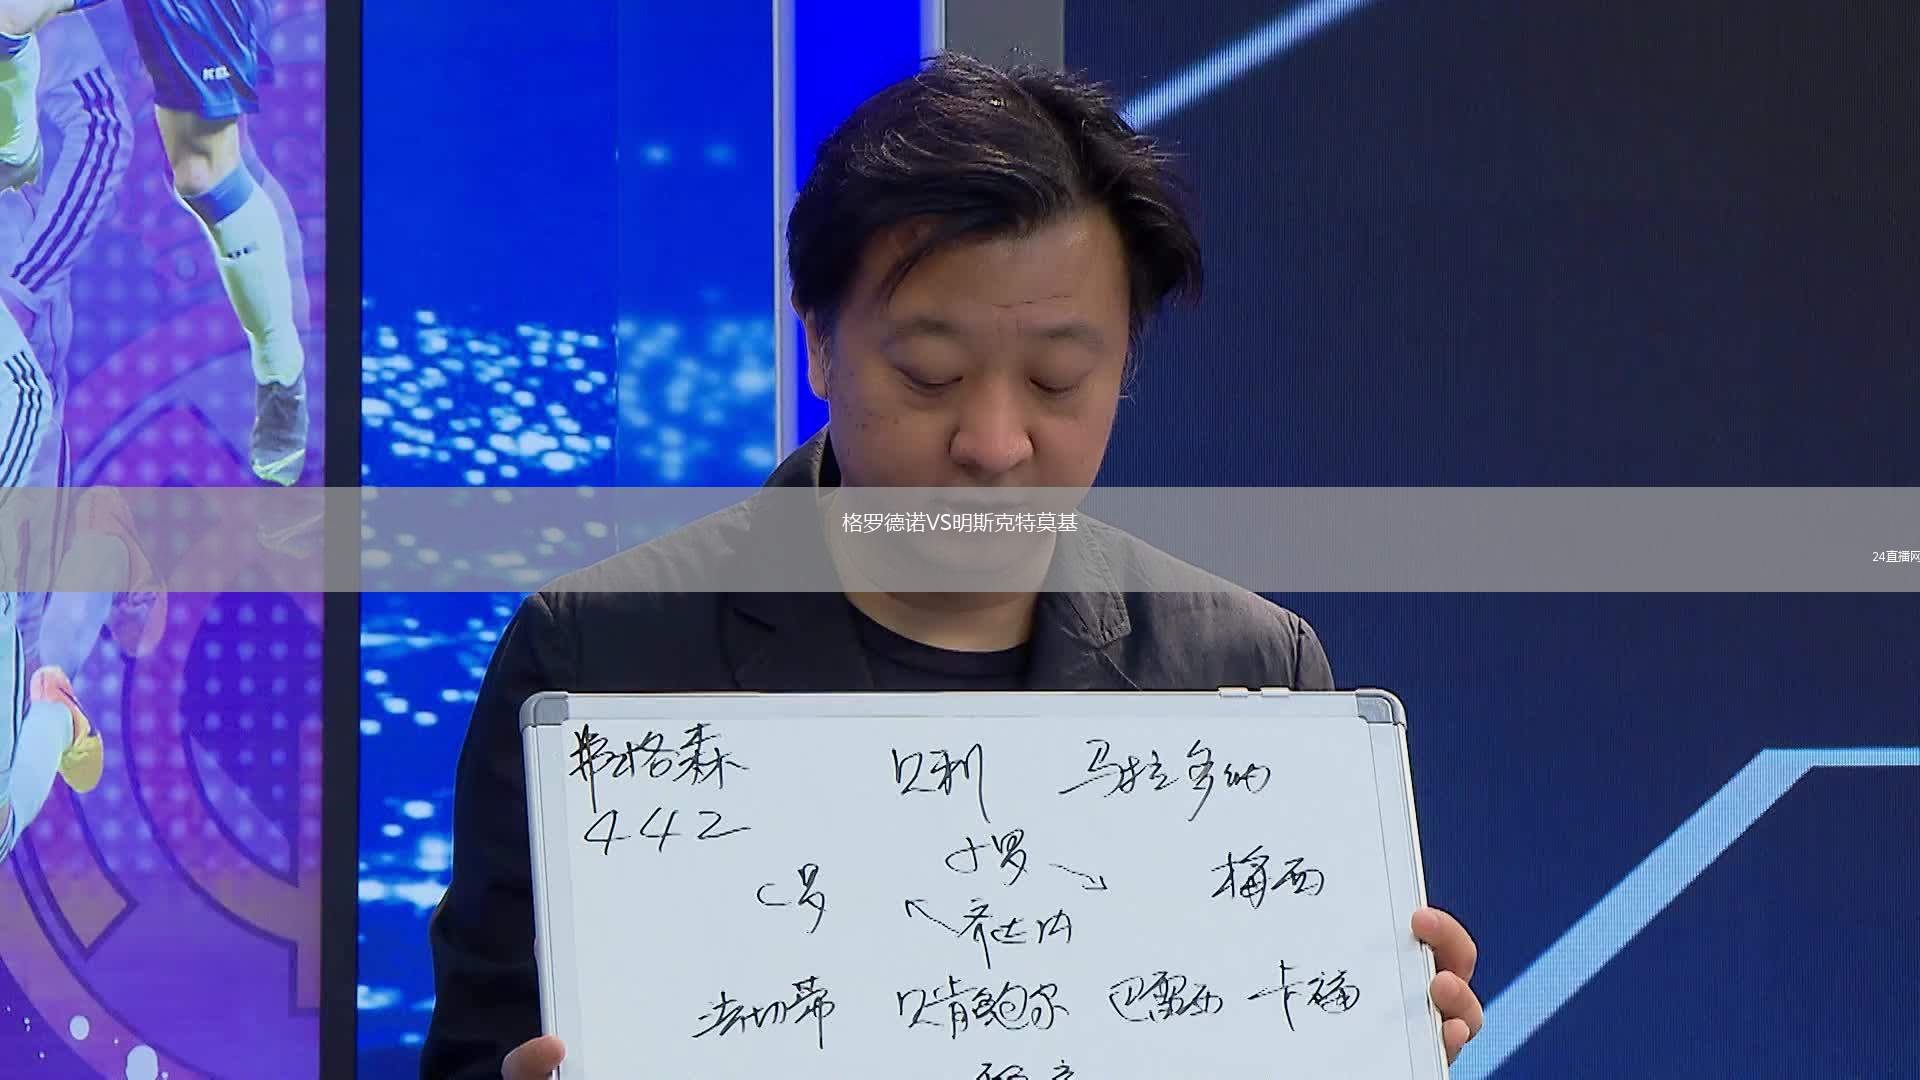 格罗德诺VS明斯克特莫基
24直播网
弗格森 贝利 马拉多纳
442
小罗
C罗 梅西
齐达内
法切蒂 贝肯鲍尔 巴雷西 卡福